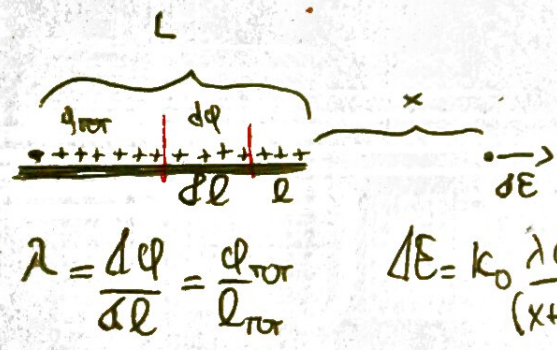 L
q_TOT dq x
+ + + + + + + + + + + + + +
dl l dE
λ = dq/dl = q_TOT/l_TOT dE = k₀ λ
(x+